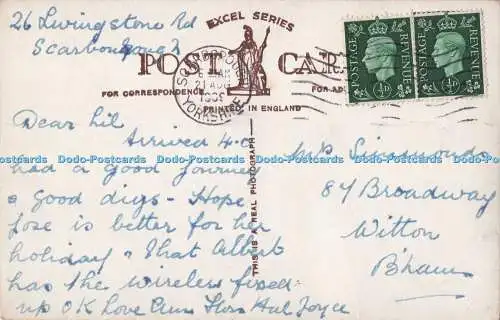 26 Livingstone Rd
Scarborough
EXCEL SERIES
POST CAR
FOR CORRESPONDENCE
FOR AD
PRINTED IN ENGLAND
YORKSHIRE
21 AU
POSTAGE REVENUE
½D
POSTAGE REVENUE
½D
THIS IS A REAL PHOTOGRAPH
Dear Lil
Arrived 4.0
had a good journey
& good digs - Hope
Jose is better for her
holiday & that Albert
has the wireless fixed
up OK Love Hal Joyce
Mrs Simmonds
84 Broadway
Witton
B'ham
Dodo-Postcards Dodo-Postcards Dodo-Postcards Dodo-Postcards Dodo-Postcards